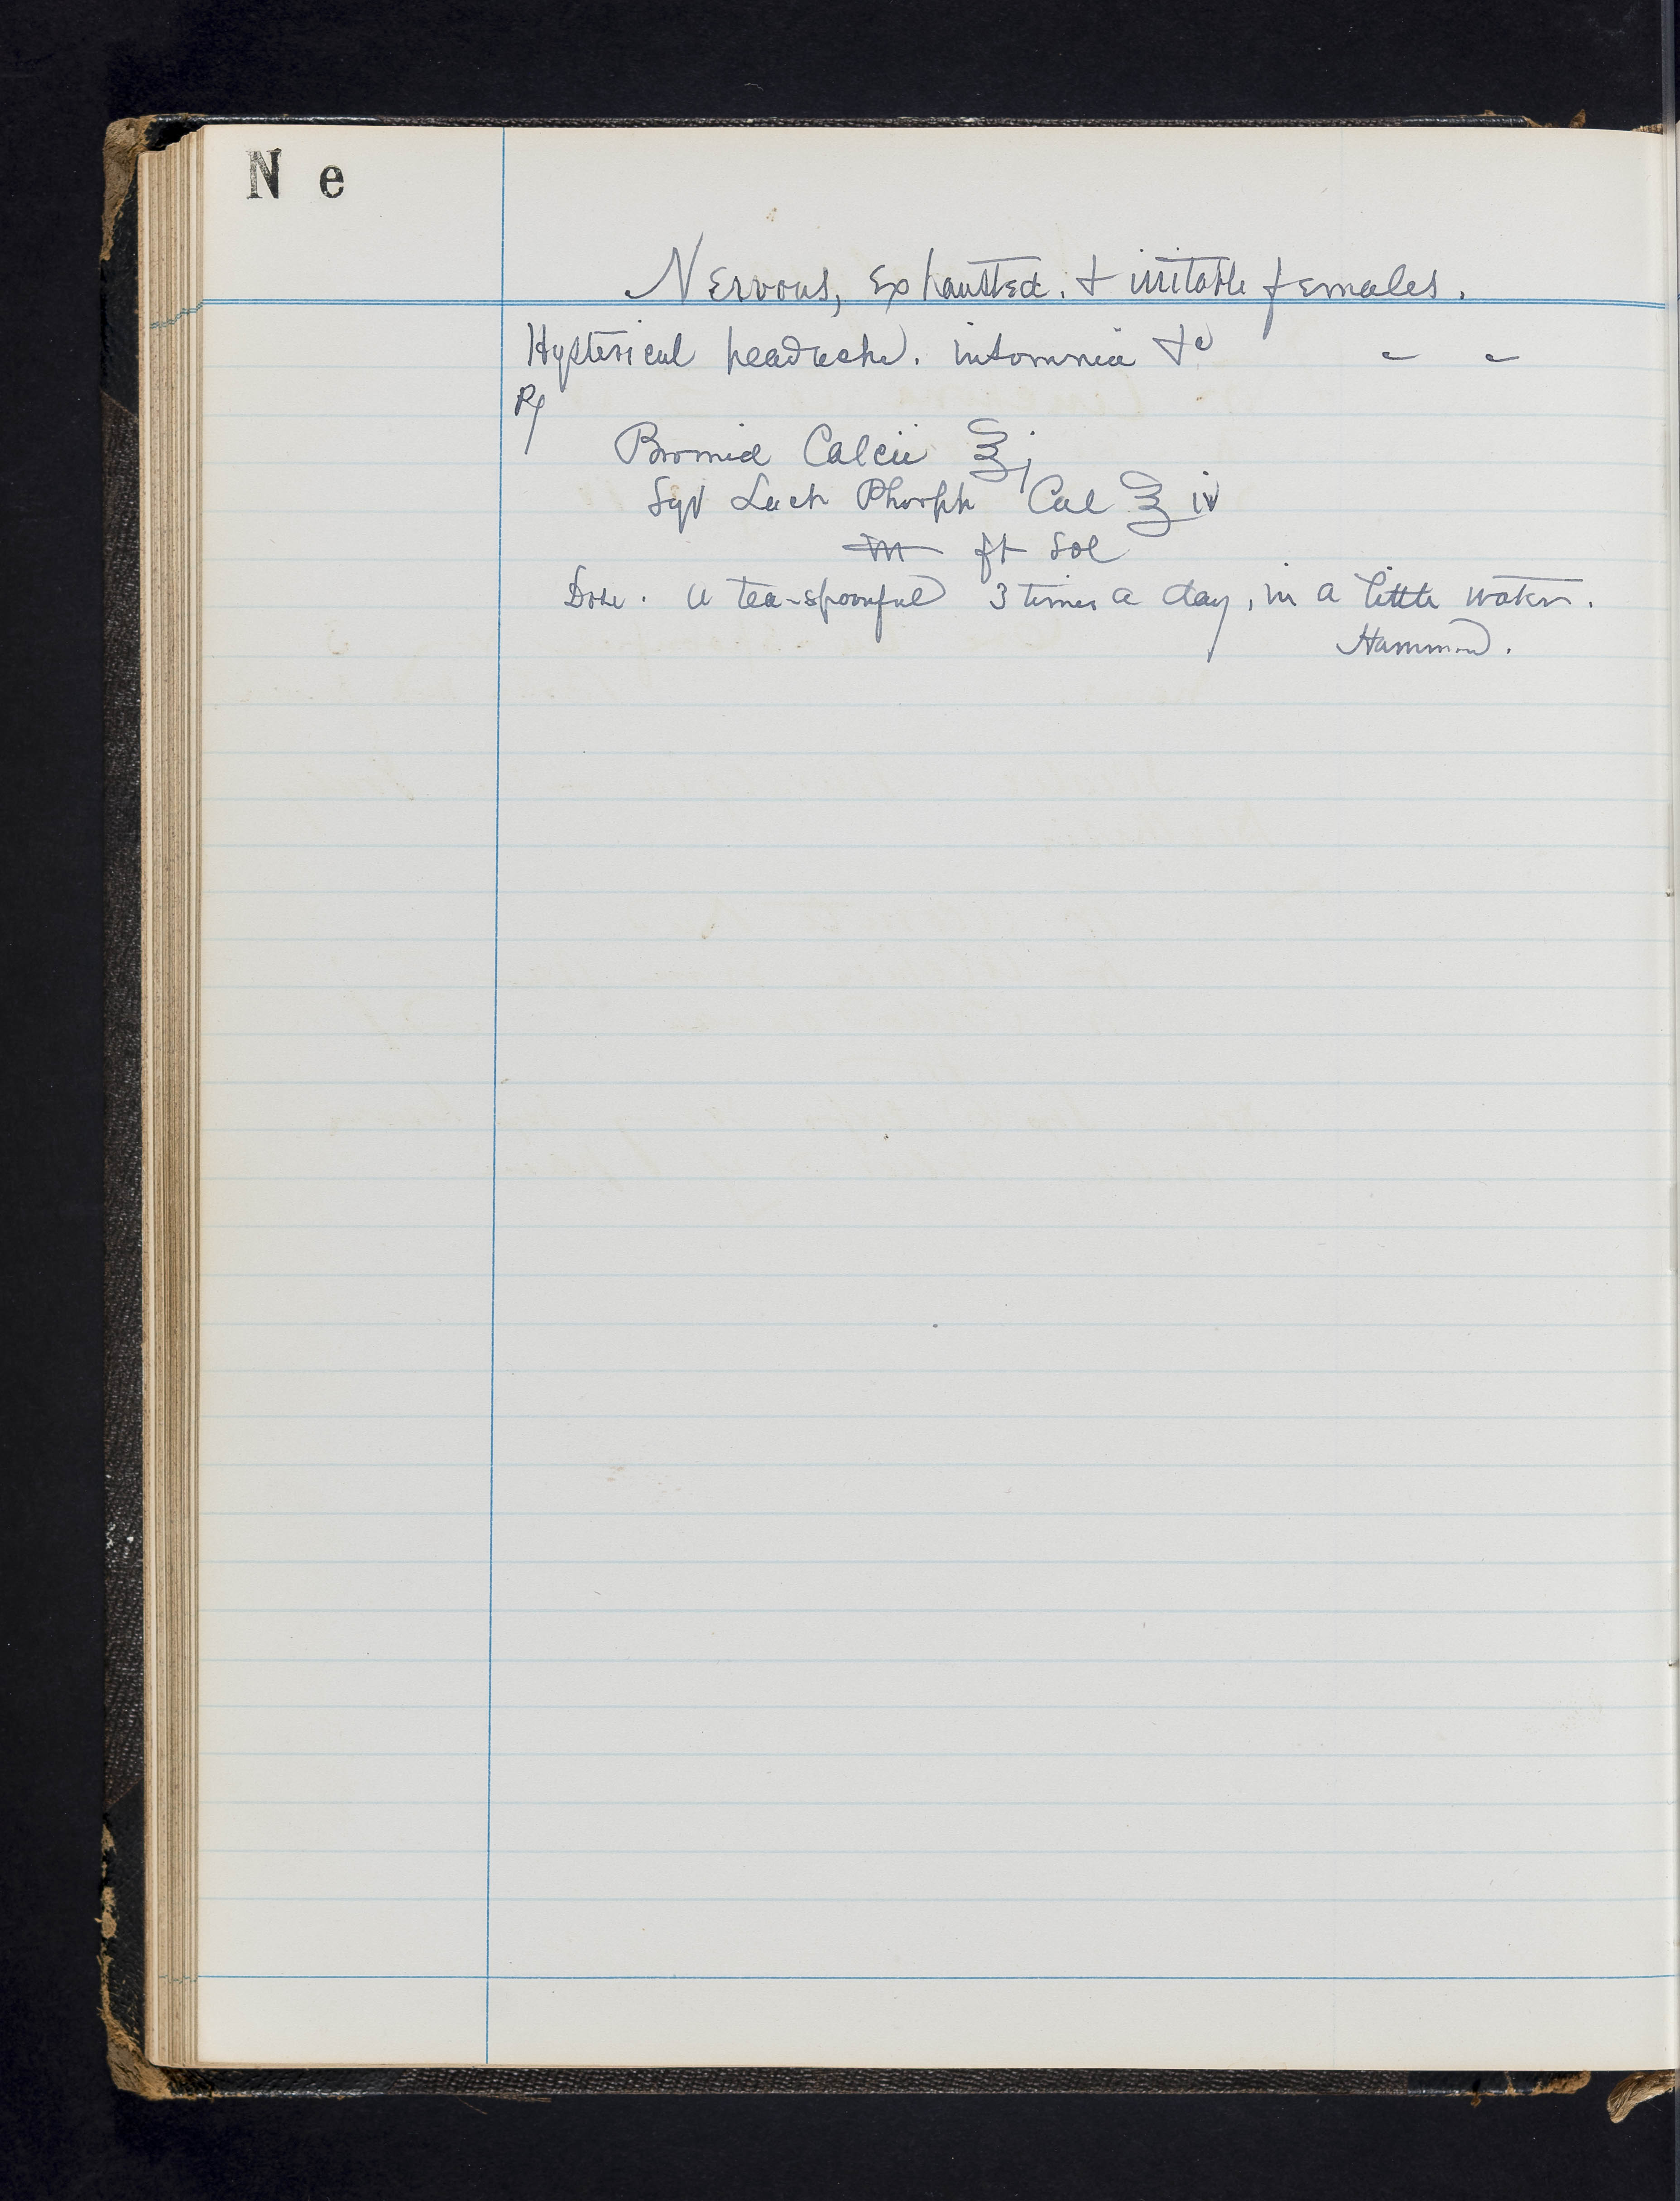 N e
Nervous, Exhausted. & irritable females.
Hysterical headache. insomnia &c " "
℞
Bromid Calcii ℥j
Syr Lact Phosph Cal ℥ iv
M ft Sol
Dose. a tea-spoonful 3 times a day, in a little water.
Hammond.